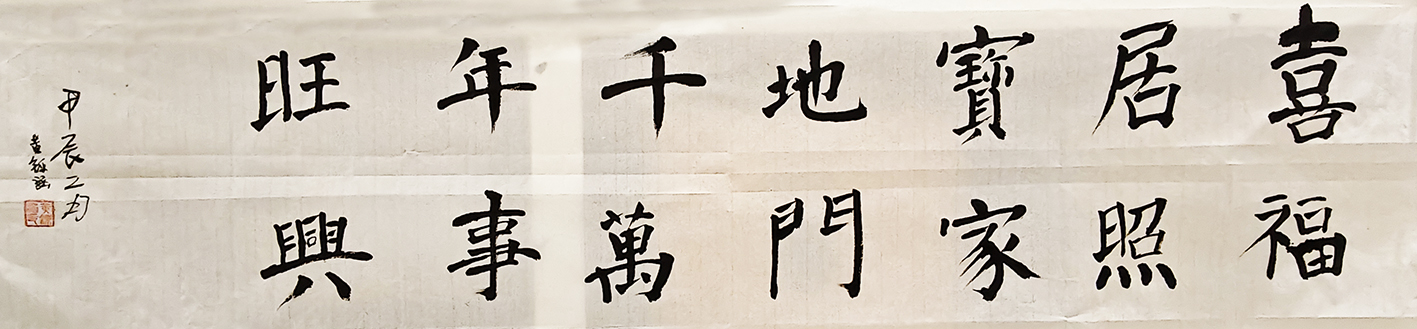 喜居寶地千年旺
福照家門萬事興
甲辰